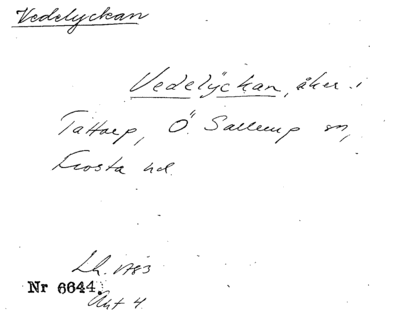 Vedelyckan
Vedelÿckan, åker i
Tattarp, Ö. Sallerup sn,
Frosta hd.
Lh. 1783
Nr 6644.
Akt 4